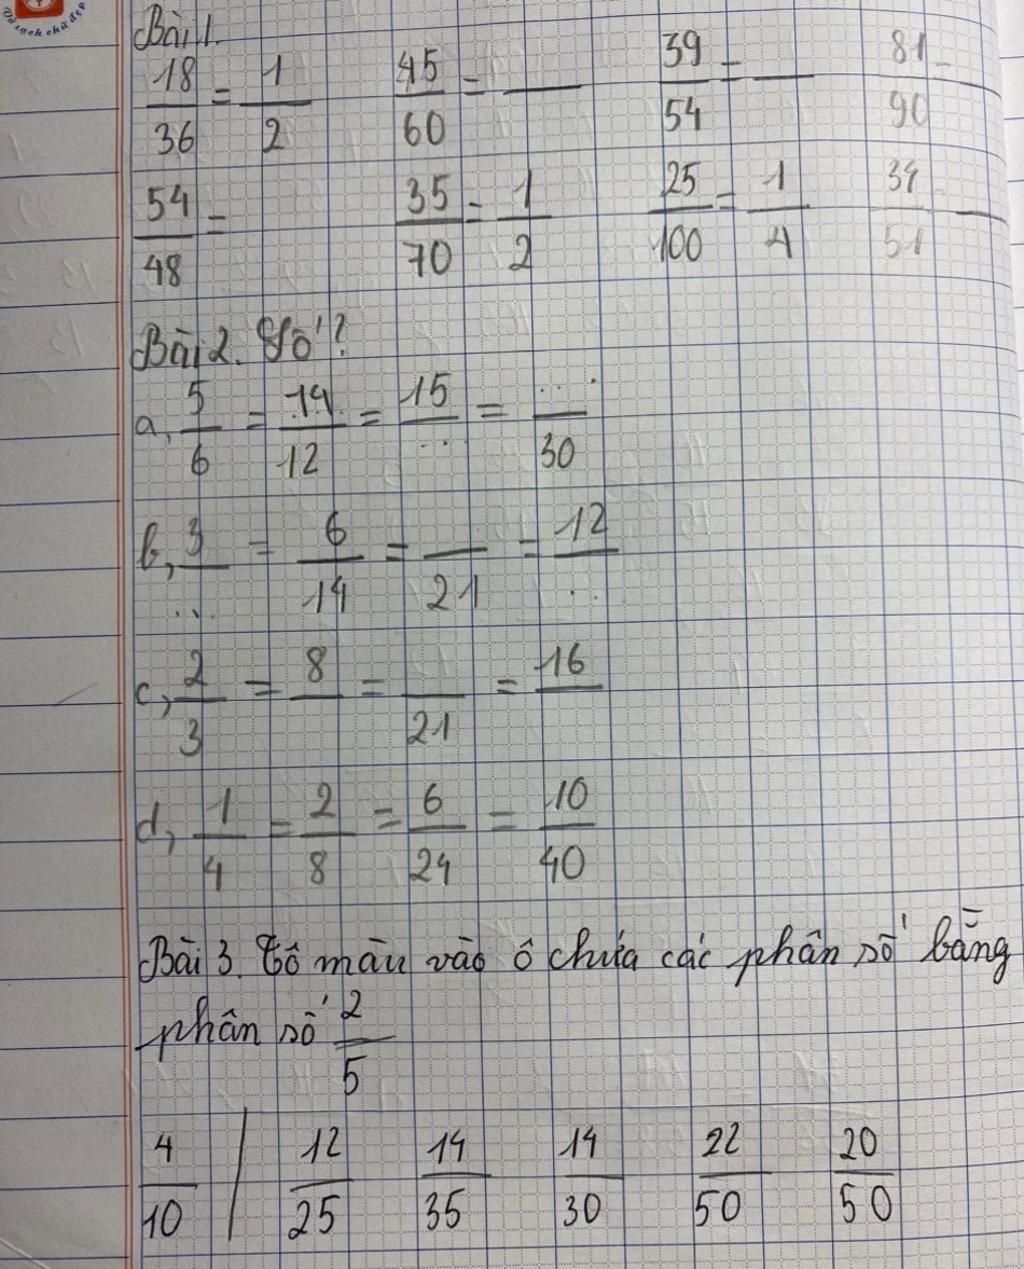 Vở sạch chữ đẹp
Bài 1.
18/36 = 1/2 45/60 = — 39/54 = — 81/90 =
54/48 = 35/70 = 1/2 25/100 = 1/4 34/51 = —
Bài 2. Số?
a, 5/6 = 14/12 = 15/.. = .../30
b, 3/... = 6/14 = —/21 = 12/..
c, 2/3 = 8/— = —/21 = 16/—
d, 1/4 = 2/8 = 6/24 = 10/40
Bài 3. Tô màu vào ô chứa các phân số bằng
phân số 2/5
4/10 | 12/25 14/35 14/30 22/50 20/50